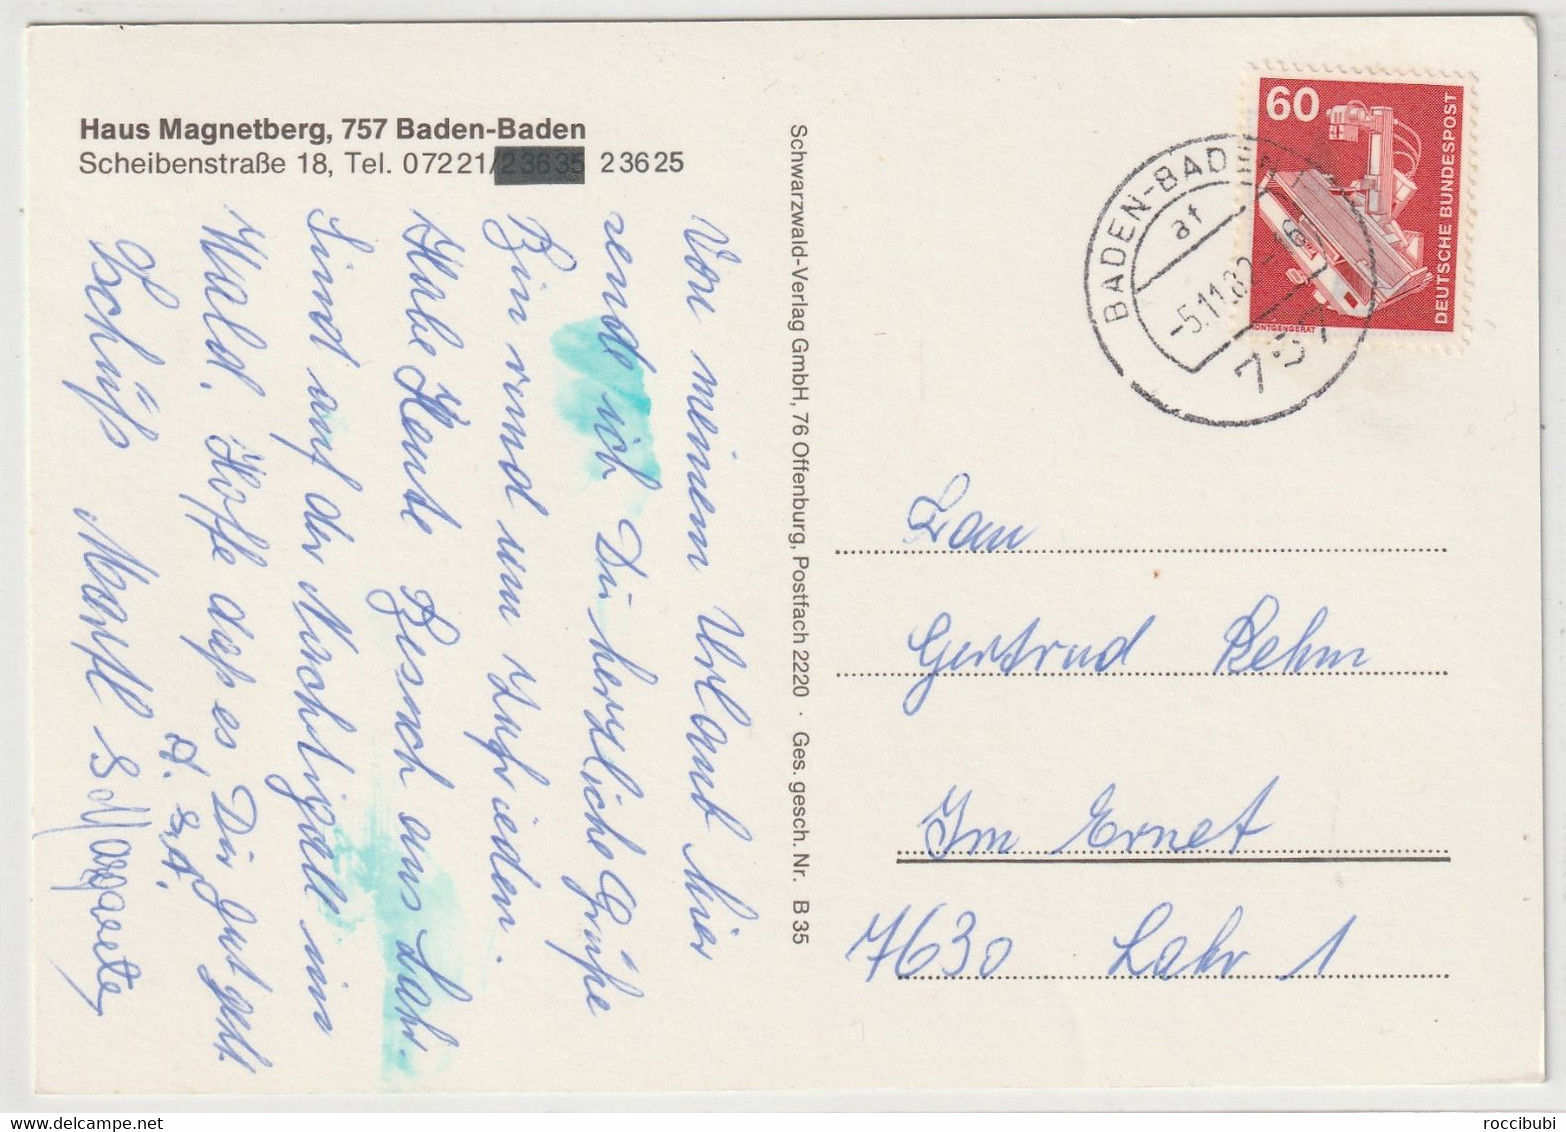 Haus Magnetberg, 757 Baden-Baden
Scheibenstraße 18, Tel. 07221/23635 23625
Von meinem Urlaub hier
sende ich Dir herzliche Grüße
Bin rund um Zufrieden.
Habe Heute Besuch aus Lahr.
Sind auf der Nachtigall im
Wald. Hoffe daß es Dir gut geht.
Tschüß
Schwarzwald-Verlag GmbH, 76 Offenburg, Postfach 2220 · Ges. gesch. Nr. B 35
60
DEUTSCHE BUNDESPOST
RÖNTGENGERÄT
BADEN-BADEN 1
af
-5.11.82-
757
Frau
Gertrud Behm
Im Ernet
7630 Lahr 1
roccibubi